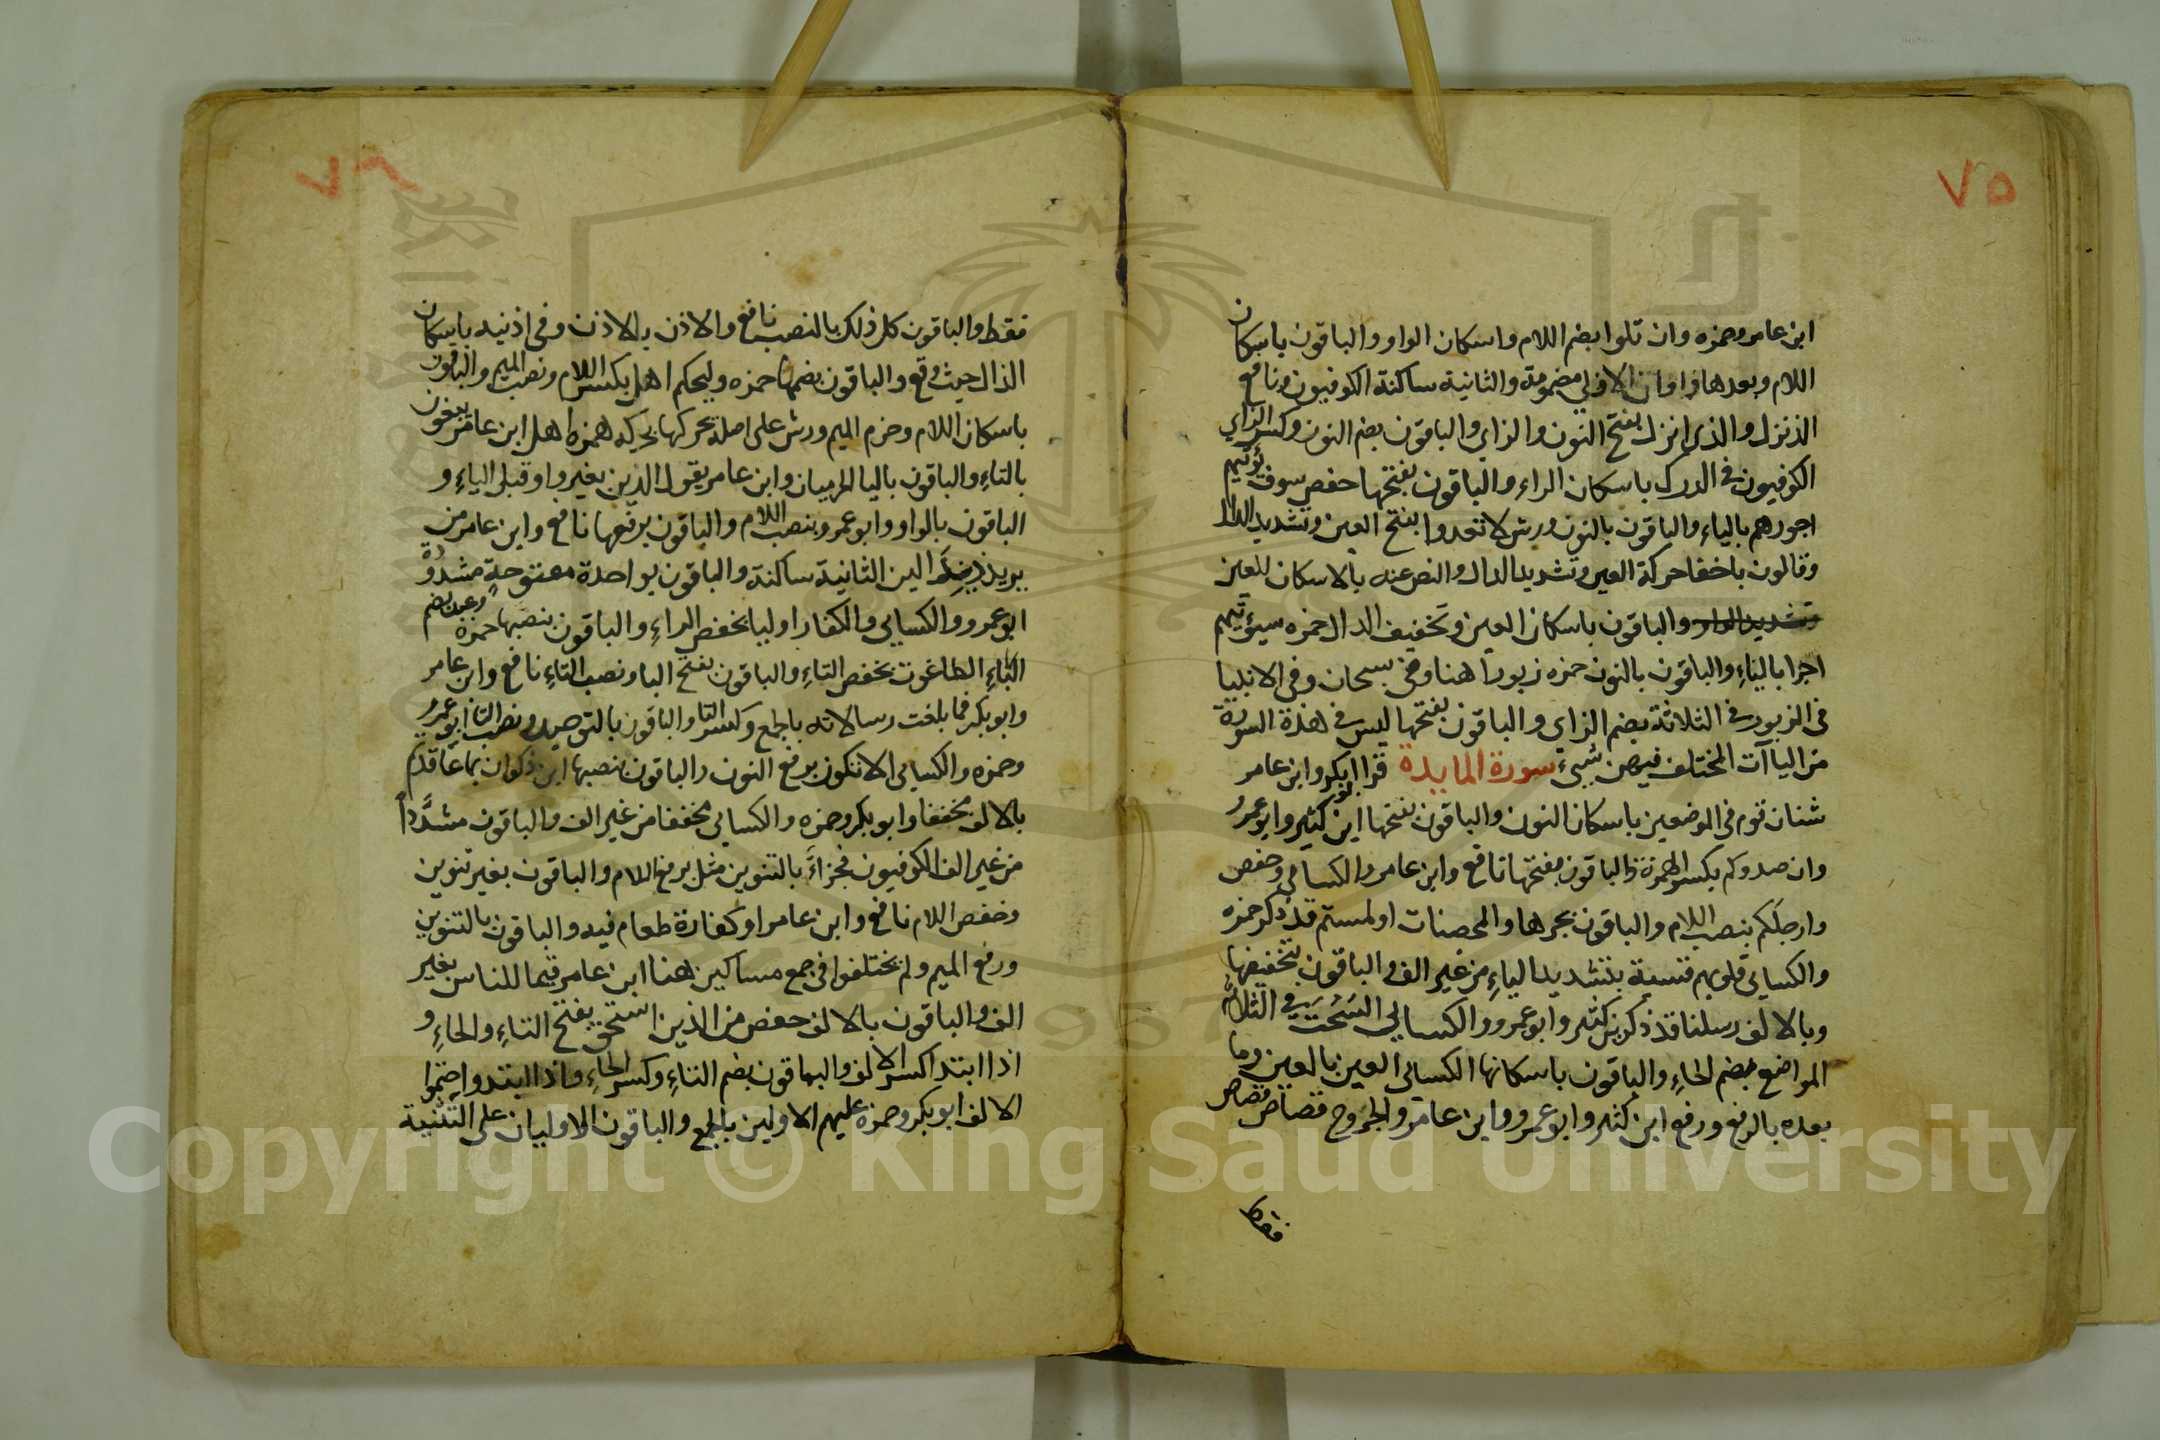 ٧٥
ابن عامر وحمزه وان تلوا بضم اللام واسكان الواو والباقون باسكان
اللام وبعدها واوان الاولى مضمومة والثانية ساكنة الكوفيون ونافع
الذنزل والذى انزل بفتح النون والزاي والباقون بضم النون وكسر الزاي
الكوفيون فى الدرك باسكان الراء والباقون بفتحها حفص سوف يؤتيهم
اجورهم بالياء والباقون بالنون ورش لا تعدوا بفتح العين وتشديد الدال
وقالون باخفا حركة العين وتشديد الدال والنص عنه بالاسكان للعين
وتشديد الدال والباقون باسكان العين وتخفيف الدال حمزه سيؤتيهم
اجرا بالياء والباقون بالنون حمزه زبورا هنا وفى سبحان وفى الانبيا
فى الزبور فى الثلاثة بضم الزاي والباقون بفتحها ليس فى هذة السورة
من الياآت المختلف فيهن شىء سورة المايدة قرا ابو بكر وابن عامر
شنان قوم فى الموضعين باسكان النون والباقون بفتحها ابن كثير وابو عمرو
وان صدوكم بكسر الهمزة والباقون بفتحها نافع وابن عامر والكساىي وحفص
وارجلكم بنصب اللام والباقون بجرها والمحصنات اولمستم قد ذكر حمزه
والكساىي قلوبهم قسية بتشديد الياء من غير الف والباقون بتخفيفها
وبالالف رسلنا قد ذكر بن كثير وابو عمرو والكسايي السحت فى الثلاثة
المواضع بضم الحاء والباقون باسكانها الكساىي العين بالعين وما
بعده بالرفع ورفع ابن كثير وابو عمرو وابن عامر والجروح قصاص
فقط
٧٦
فقط والباقون كل ذلك بالنصب نافع والاذن بالاذن وفى اذنيه باسكان
الذال حيث وقع والباقون بضمها حمزه وليحكم اهل بكسر اللام ونصب الميم والباقون
باسكان اللام وجزم الميم ورش على اصله يحركها بحركه همزه اهل ابن عامر تبغون
بالتاء والباقون باليا الحرميان وابن عامر يقول الذين بغير واو قبل الياء و
الباقون بالواو وابو عمرو بنصب اللام والباقون برفعها نافع وابن عامر من
يرتدد الين الثانية ساكنة والباقون بواحدة مفتوحة مشددة
ابو عمرو والكسايي والكفار اوليا بخفض الراء والباقون بنصبها حمزه وعبد بضم
الباء الطاغوت بخفض التاء والباقون بفتح البا ونصب التاء نافع وابن عامر
وابو بكر فما بلغت رسالاته بالجمع وكسر التا والباقون بالتوحيد ونصب التا ابو عمرو
وحمزه والكساىي الا تكون برفع النون والباقون بنصبها ابن ذكوان بما عاقدتم
بالالف مخففا وابو بكر وحمزه والكسايى مخففا من غير الف والباقون مشدداً
من غير الف الكوفيون فجزاءً بالتنوين مثل برفع اللام والباقون بغير تنوين
وخفض اللام نافع وابن عامر او كفارة طعام فيه والباقون بالتنوين
ورفع الميم ولم يختلفوا فى جمع مساكين هنا ابن عامر قيما للناس بغير
الف والباقون بالالف حفص من الذين استحق بفتح التاء والحاء و
اذا ابتدا كسر الالف والباقون بضم التاء وكسر الحاء واذا ابتدوا ضموا
الالف ابو بكر وحمزه عليهم الاولين بالجمع والباقون الاوليان على التثنية
Copyright © King Saud University
1957